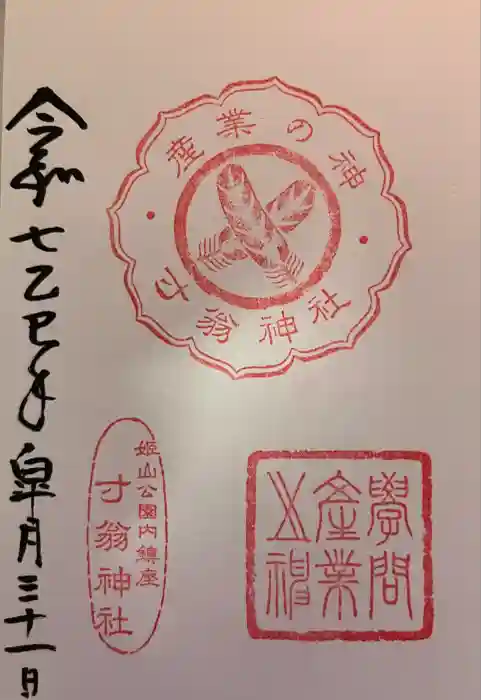 産業の神
寸翁神社
學問
産業
乃神
姫山公園内鎮座
寸翁神社
令和七乙巳年皐月三十一日